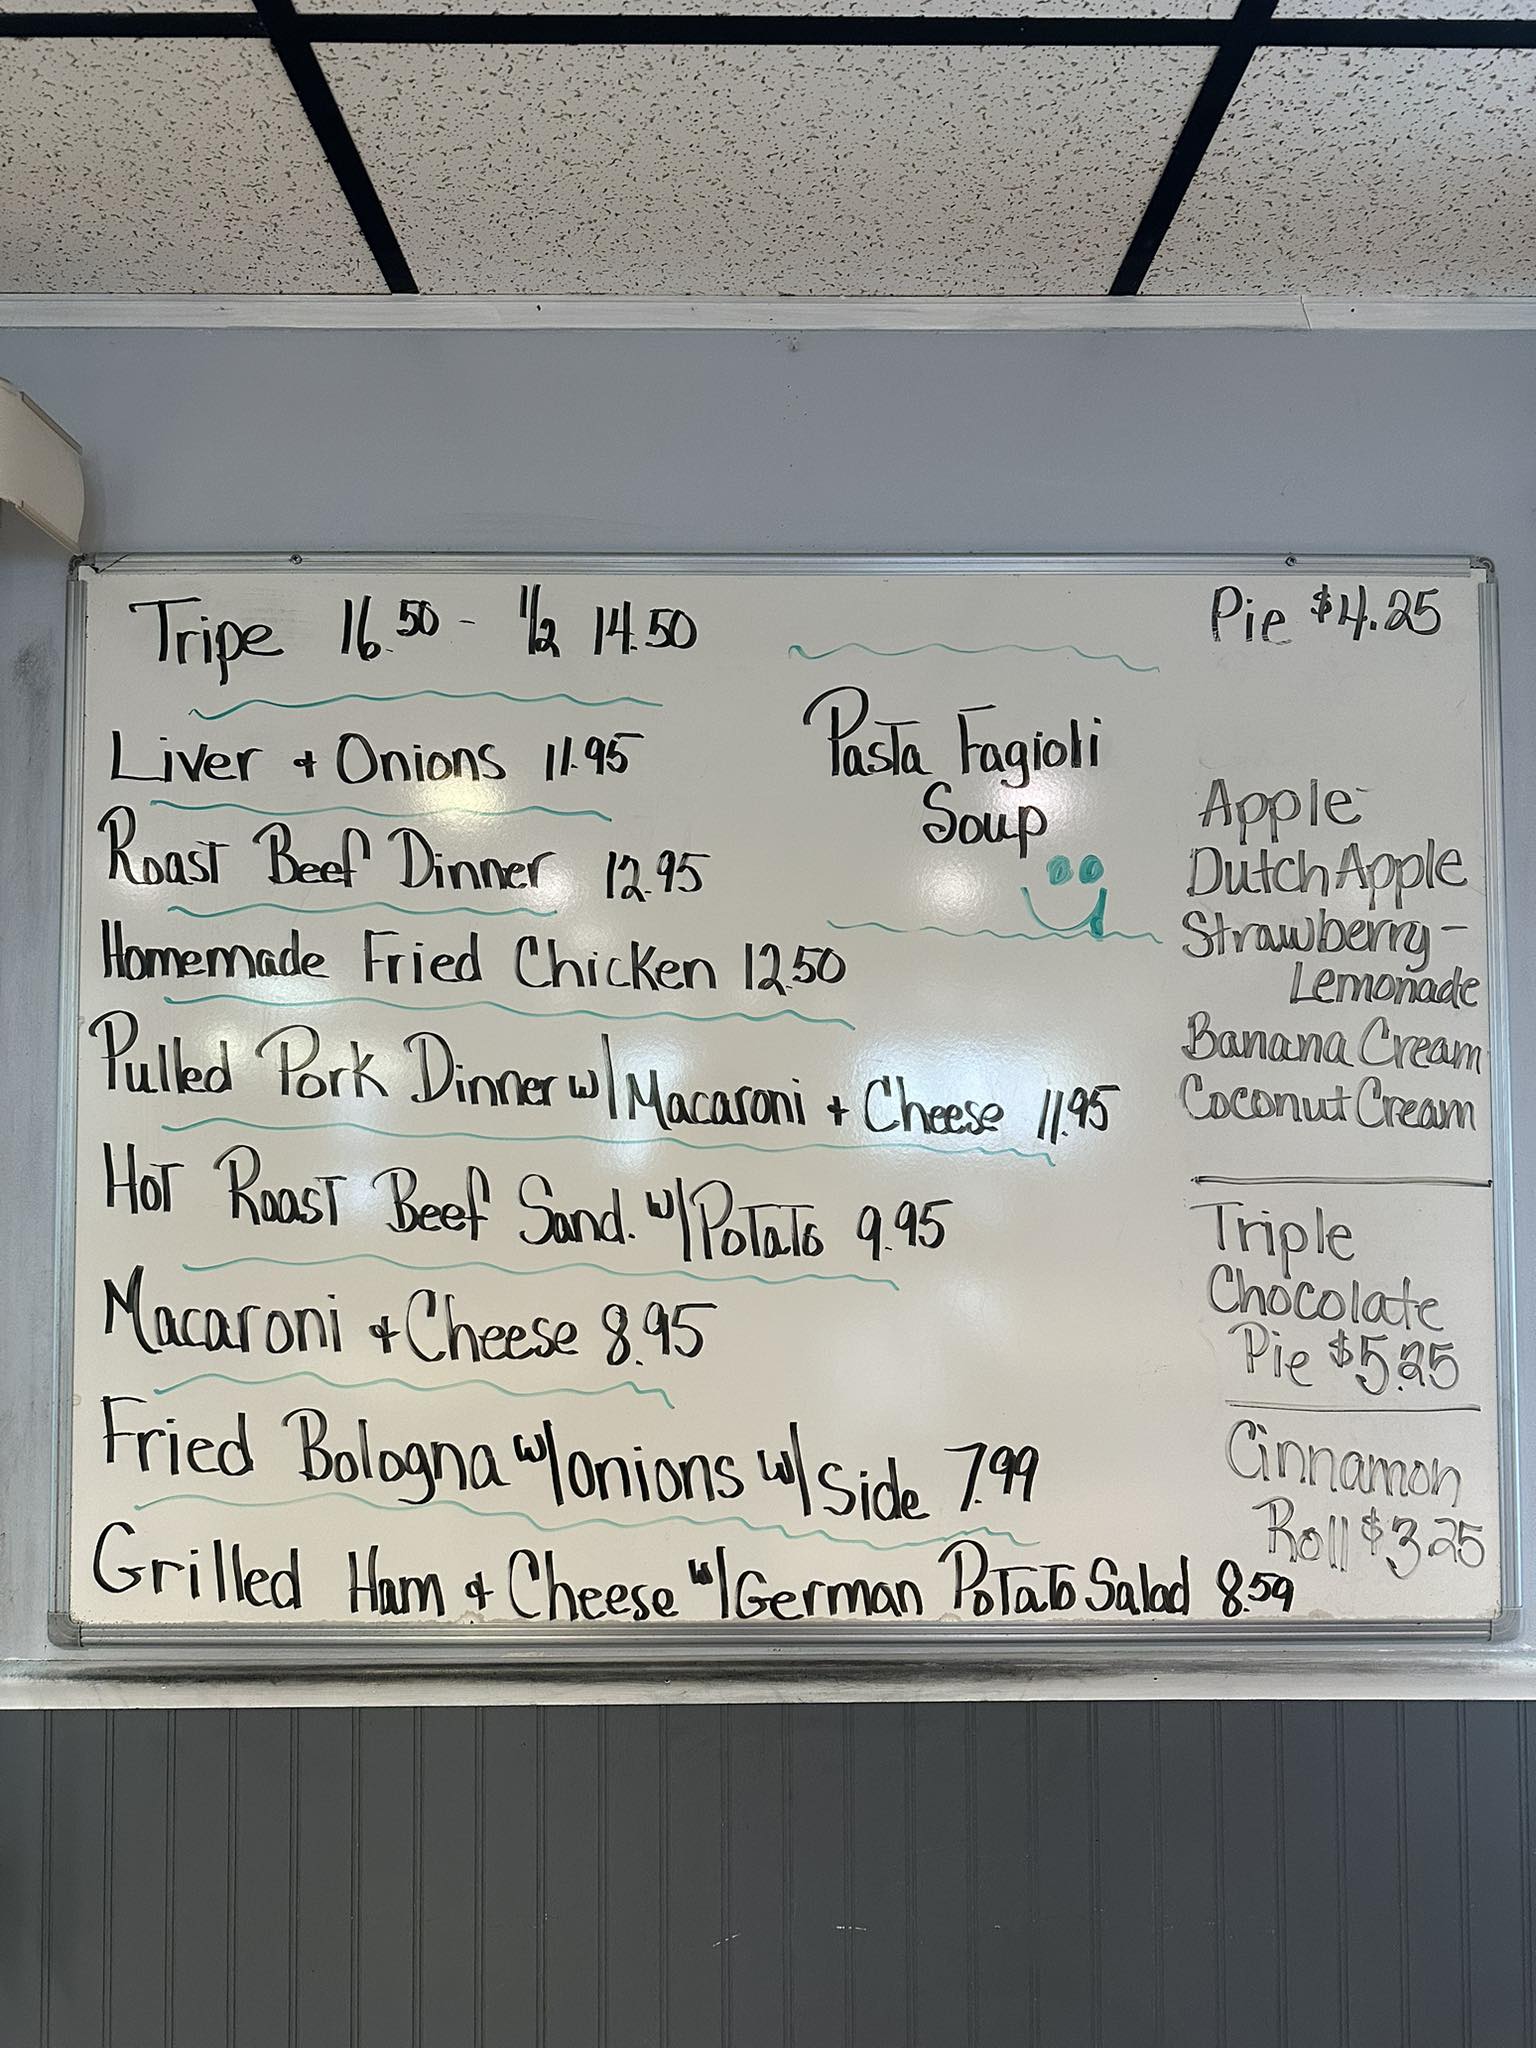 Tripe 16.50 - 1/2 14.50
Liver + Onions 11.95
Roast Beef Dinner 12.95
Homemade Fried Chicken 12.50
Pulled Pork Dinner w/ Macaroni + Cheese 11.95
Hot Roast Beef Sand. w/ Potato 9.95
Macaroni + Cheese 8.95
Fried Bologna w/ onions w/ Side 7.99
Grilled Ham + Cheese w/ German Potato Salad 8.59
Pasta Fagioli
Soup
Pie $4.25
Apple
Dutch Apple
Strawberry-
Lemonade
Banana Cream
Coconut Cream
Triple
Chocolate
Pie $5.25
Cinnamon
Roll $3.25